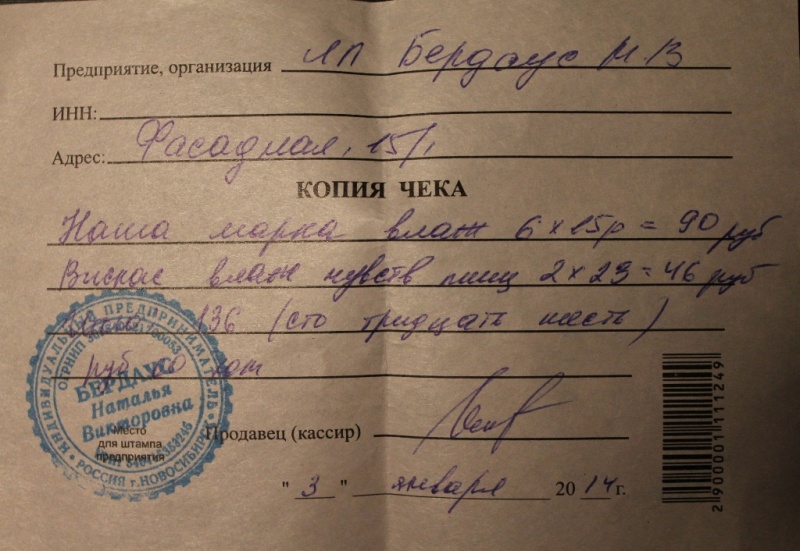 Предприятие, организация ИП Бердаус Н.В
ИНН:
Адрес: Фасадная, 15/1
КОПИЯ ЧЕКА
Наша марка влаж 6 x 15р = 90 руб
Вискас влаж чувств пищ 2 x 23 = 46 руб
Итого 136 (сто тридцать шесть)
руб 00 коп
ИНДИВИДУАЛЬНЫЙ ПРЕДПРИНИМАТЕЛЬ
ОГРНИП
БЕРДАУС
Наталья
Викторовна
РОССИЯ г.НОВОСИБИРСК
Место
для штампа
предприятия
Продавец (кассир)
" 3 " января 20 14 г.
2 900001 111249